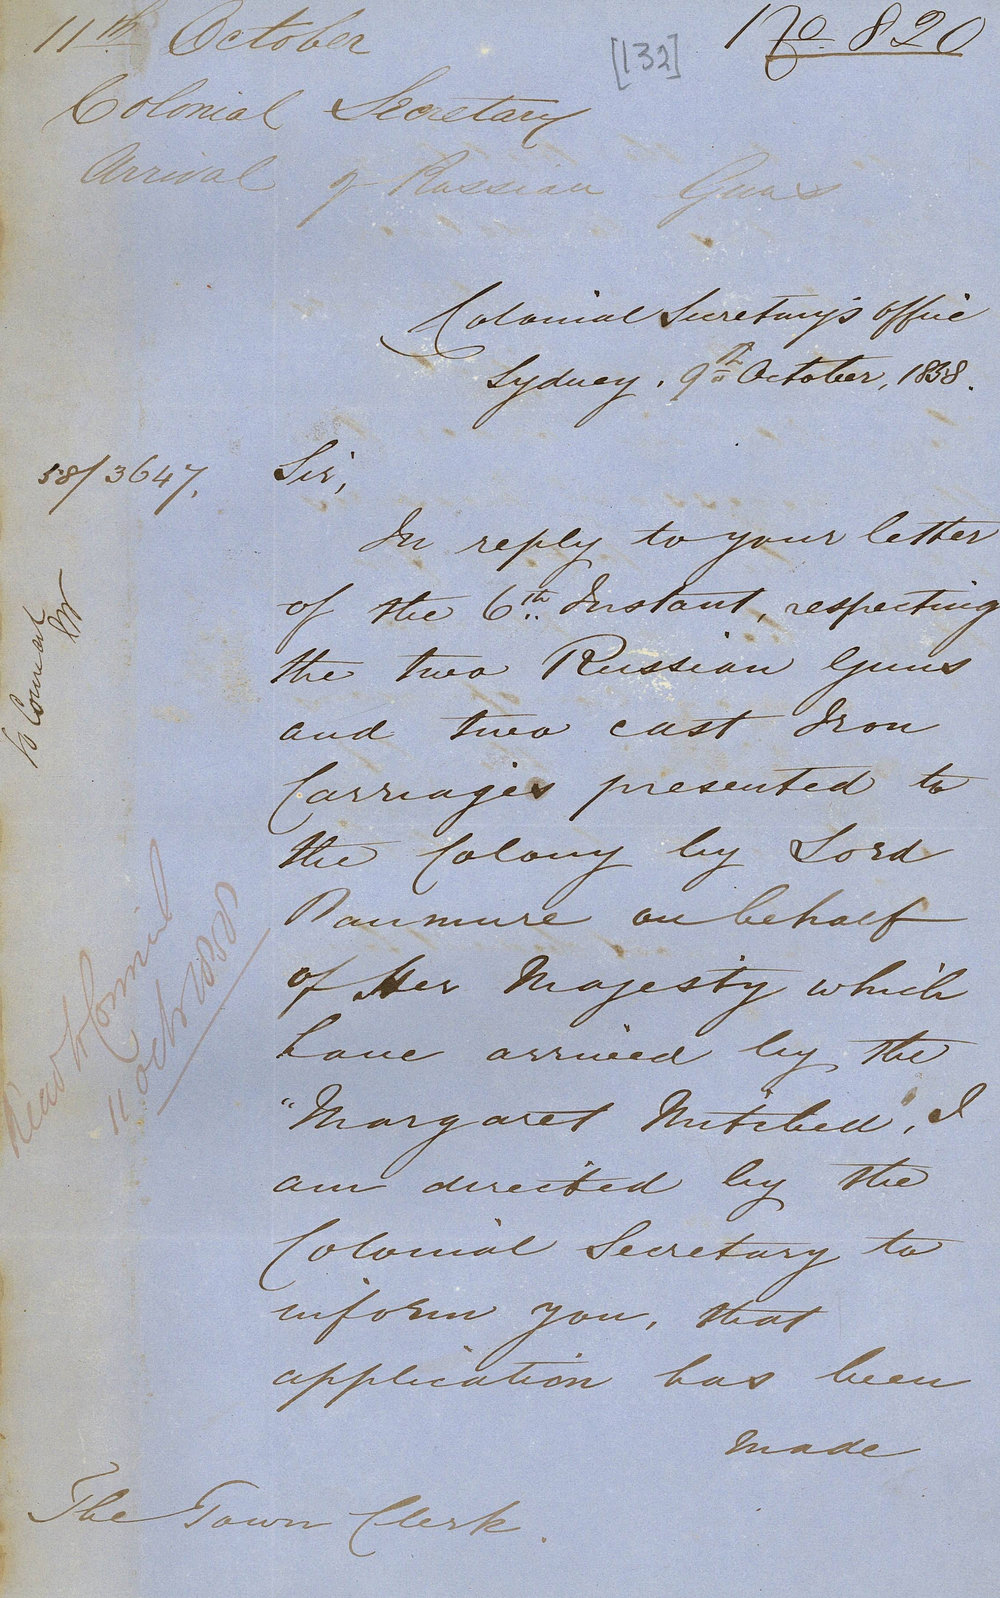 11th October
No 820
[132]
Colonial Secretary
Arrival of Russian Guns
Colonial Secretary's Office
Sydney, 9th October, 1858.
58/3647.
Sir,
In reply to your letter
of the 6th Instant, respecting
the two Russian Guns
and two cast Iron
Carriages presented to
the Colony by Lord
Panmure on behalf
of Her Majesty which
have arrived by the
"Margaret Mitchell, I
am directed by the
Colonial Secretary to
inform you, that
application has been
made
The Town Clerk.
To Council
Read to Council
11 Octr 1858